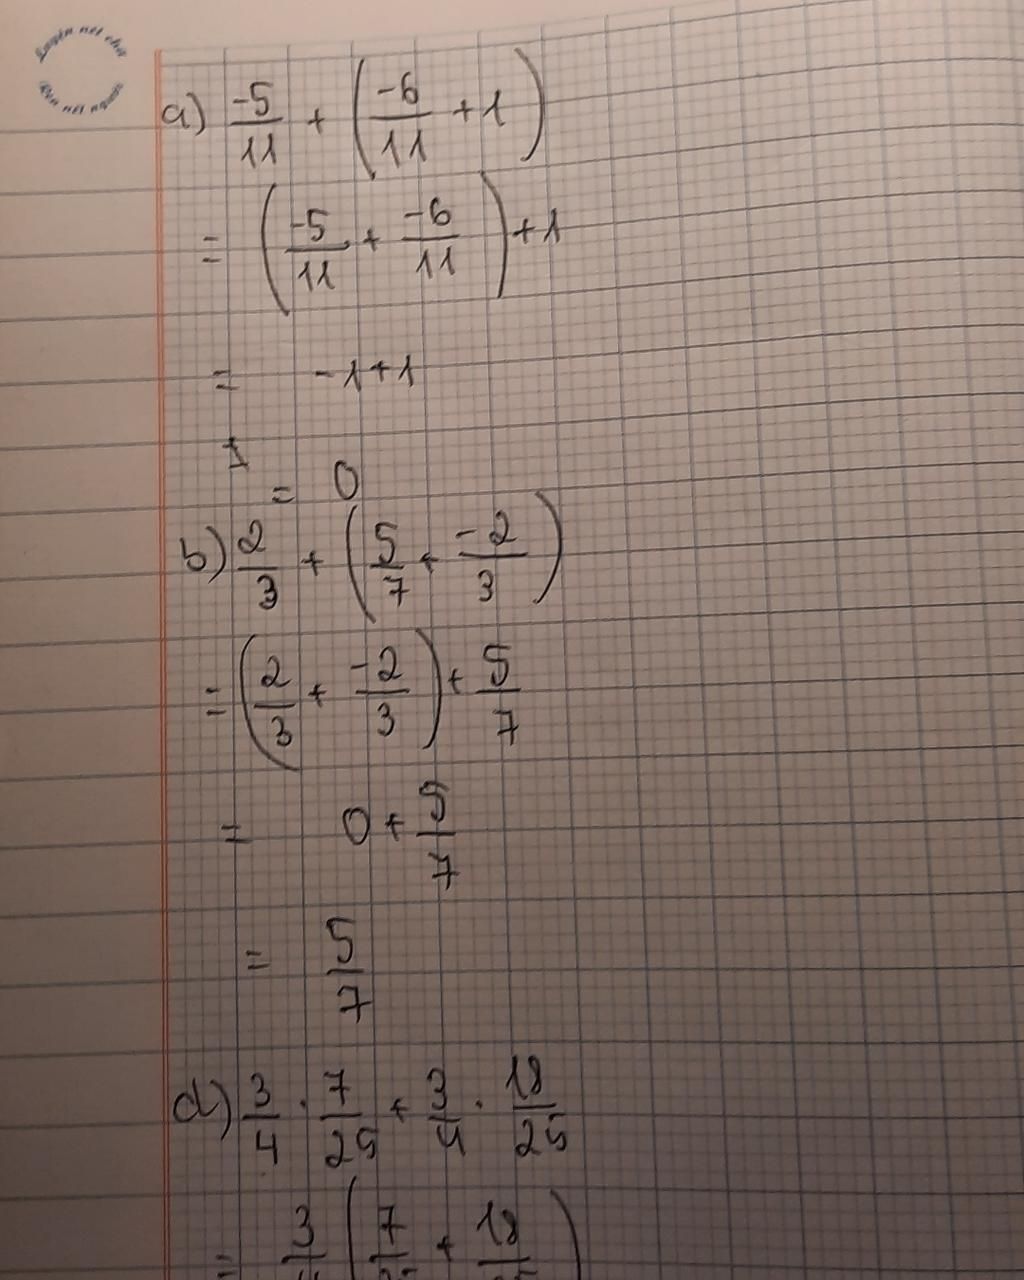 Luyện nét chữ
Rèn nét người
a) \frac{-5}{11} + \left( \frac{-6}{11} + 1 \right)
= \left( \frac{-5}{11} + \frac{-6}{11} \right) + 1
= -1 + 1
= 0
b) \frac{2}{3} + \left( \frac{5}{7} + \frac{-2}{3} \right)
= \left( \frac{2}{3} + \frac{-2}{3} \right) + \frac{5}{7}
= 0 + \frac{5}{7}
= \frac{5}{7}
d) \frac{3}{4} . \frac{7}{25} + \frac{3}{4} . \frac{18}{25}
= 3 ( 7 + 18 )